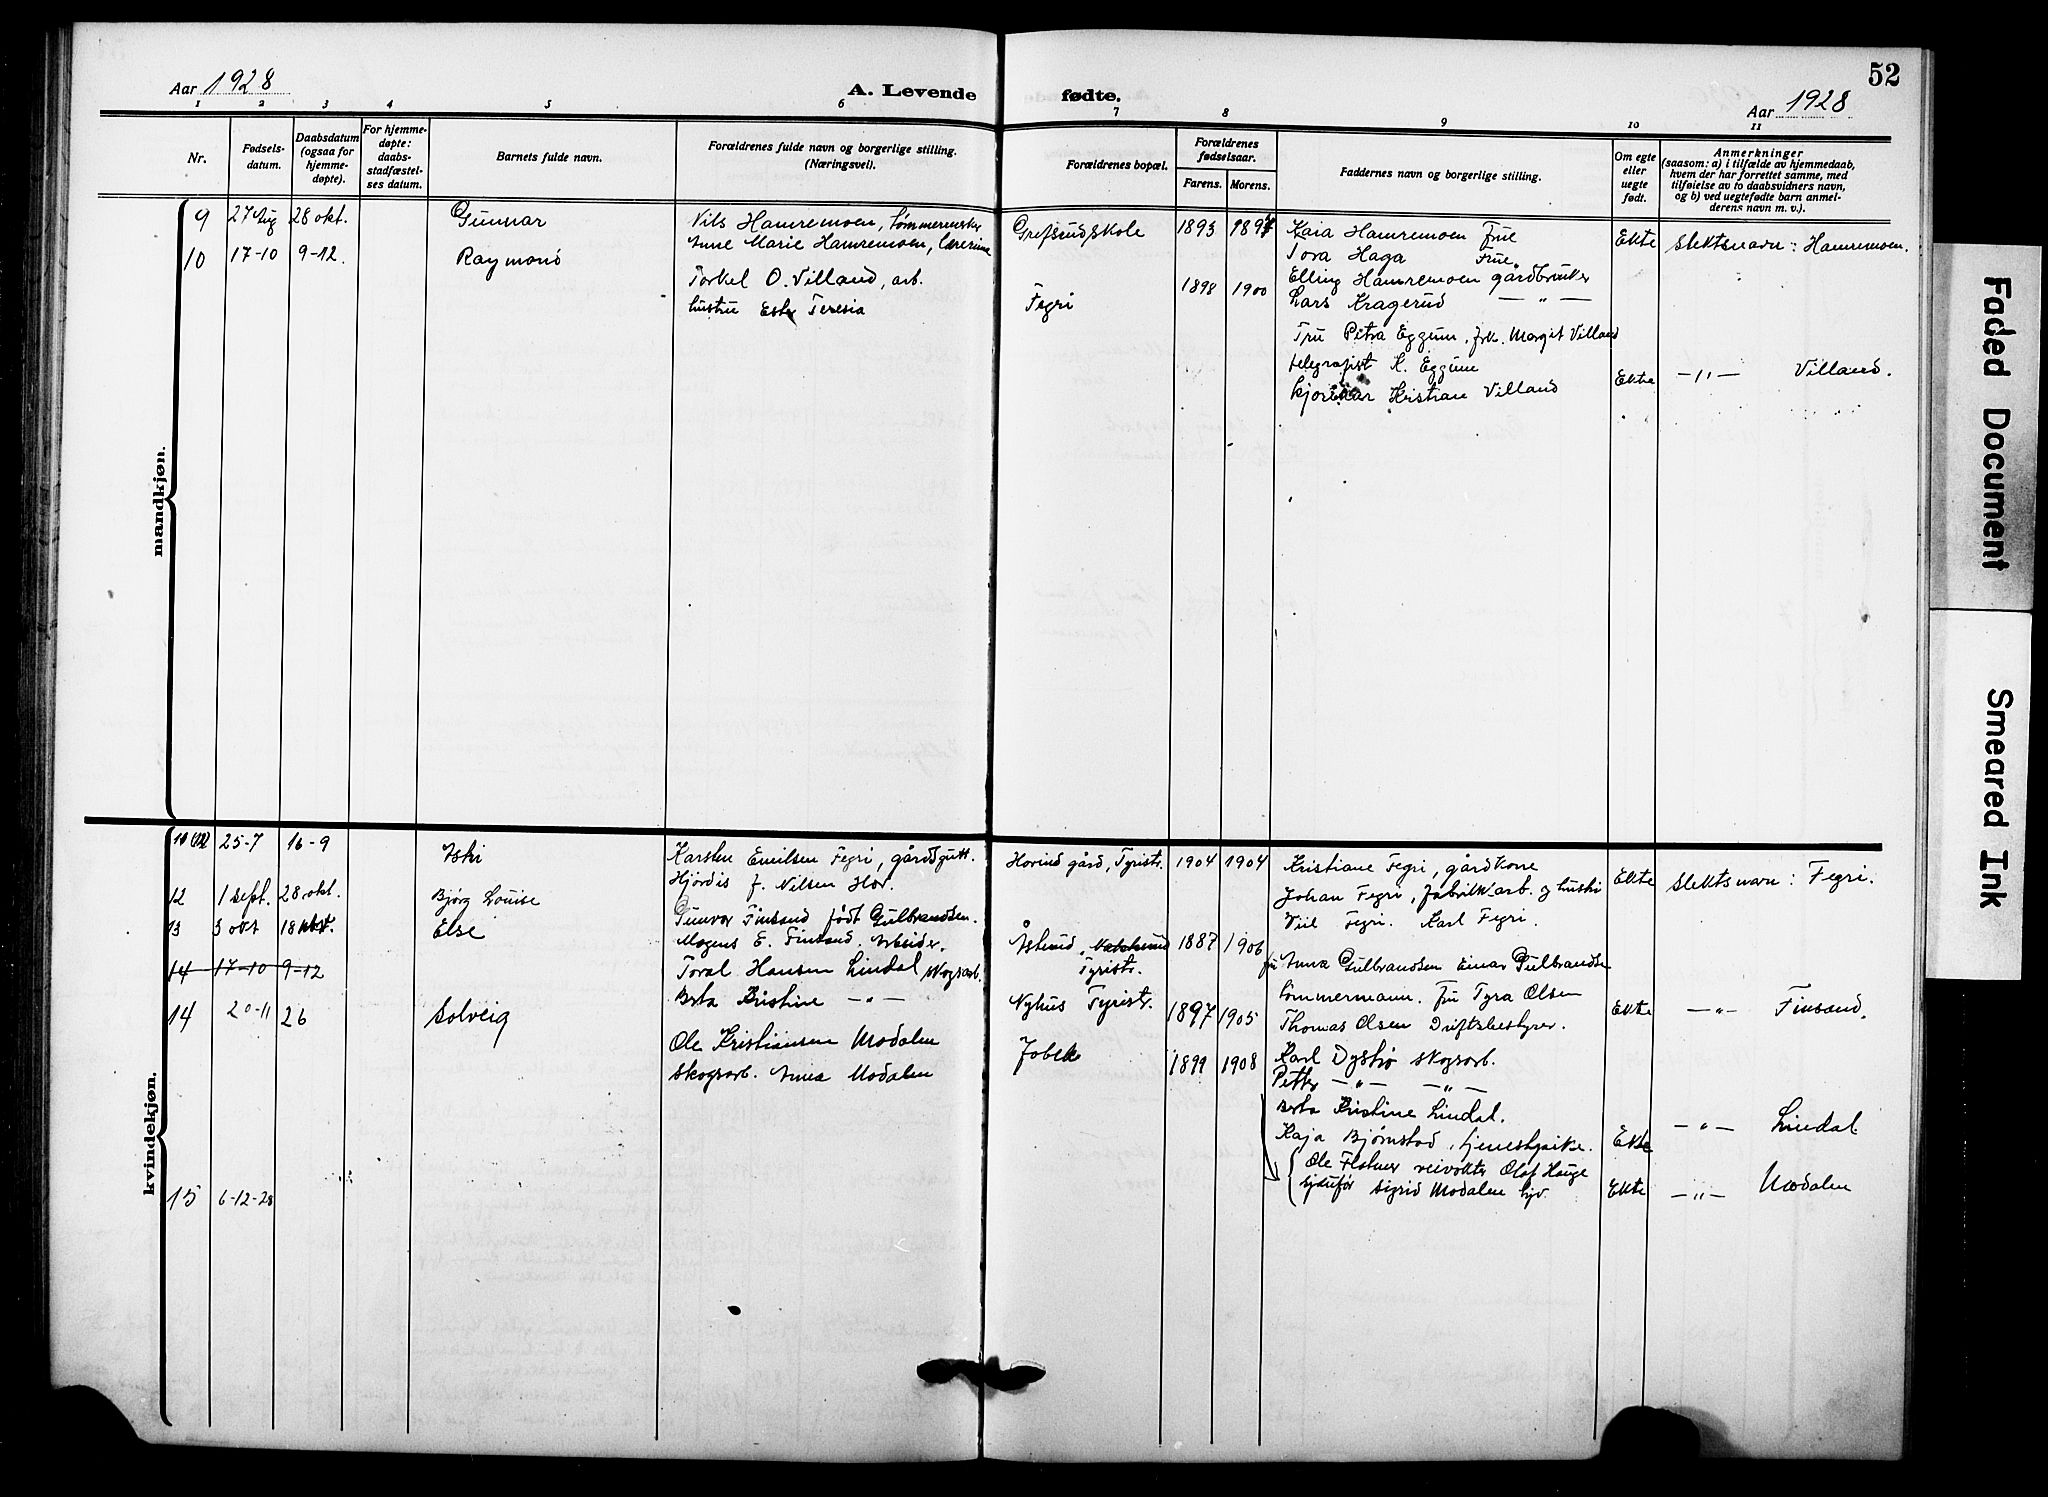 52
Aar 1928
A. Levende fødte.
Aar 1928
1 2 3 4 5 6 7 8 9 10 11
Nr.
Fødsels-
datum.
Daabsdatum
(ogsaa for
hjemme-
døpte).
For hjemme-
døpte:
daabs-
stadfæstel-
ses datum.
Barnets fulde navn.
Forældrenes fulde navn og borgerlige stilling.
(Næringsvei).
Forældrenes bopæl.
Forældrenes
fødselsaar.
Farens. Morens.
Faddernes navn og borgerlige stilling.
Om egte
eller
uegte
født.
Anmerkninger
(saasom: a) i tilfælde av hjemmedaab,
hvem der har forrettet samme, med
tilføielse av to daabsvidners navn,
og b) ved uegtefødte barn anmel-
derens navn m. v.).
mandkjøn.
9 27 Aug 28 okt. Gunnar
Nils Hamremoen, tømmermester
Anne Marie Hamremoen, Lærerinne
Grefsrud skole 1893 1897
Kaia Hamremoen Frue
Tora Haga Frue
Elling Hamremoen gårdbruker
Lars Kragerud — " —
Ekte Slektsnavn: Hamremoen.
10 17-10 9-12. Raymond
Torkel O. Villand, arb.
hustru Ester Teresia
Fegri 1898 1900
Fru Petra Eggum, frk. Margit Villand
telegrafist K. Eggum
Kristian Villand
Ekte — " — Villand.
kvindekjøn.
25-7 16-9
Karsten Emilsen Fegri, gårdsgutt.
Hjørdis f. Nilsen Hov.
Hovind gård, Tyristr. 1904 1904
Kristiane Fegri, gårdkone
Johan Fegri, fabrikkarb. og hustru
Fegri. Karl Fegri.
Ekte Slektsnavn: Fegri.
12 1 sept. 28 okt. Bjørg Louise
Gunvor Finsand født Gulbrandsen.
Mogens E. Finsand. Arbeider.
Tyristr. 1887 1906
fru Anna Gulbrandsen Einar Gulbrandsen
tømmermann. Fru Tyra Olsen
Thomas Olsen Driftsbestyrer.
Ekte — " — Finsand.
13 3 okt 18 Else
Toral Hansen Lindal skogsarb.
Berta Kristine — " —
Nyhus Tyristr. 1897 1905
Karl Dystjø skogsarb.
Petter — " — — " —
Berta Kristine Lindal.
Kaja Bjørnstad, tjenestepike.
Ekte — " — Lindal
14 17-10 9-12
14 20-11 26 Solveig
Ole Kristiansen Modalen
skogsarb. Anna Modalen
1899 1908
Ole Flatner veivokter Olaf Hauge
Sigrid Modalen hjv.
Ekte — " — Modalen
15 6-12-28
Faded Document
Smeared Ink